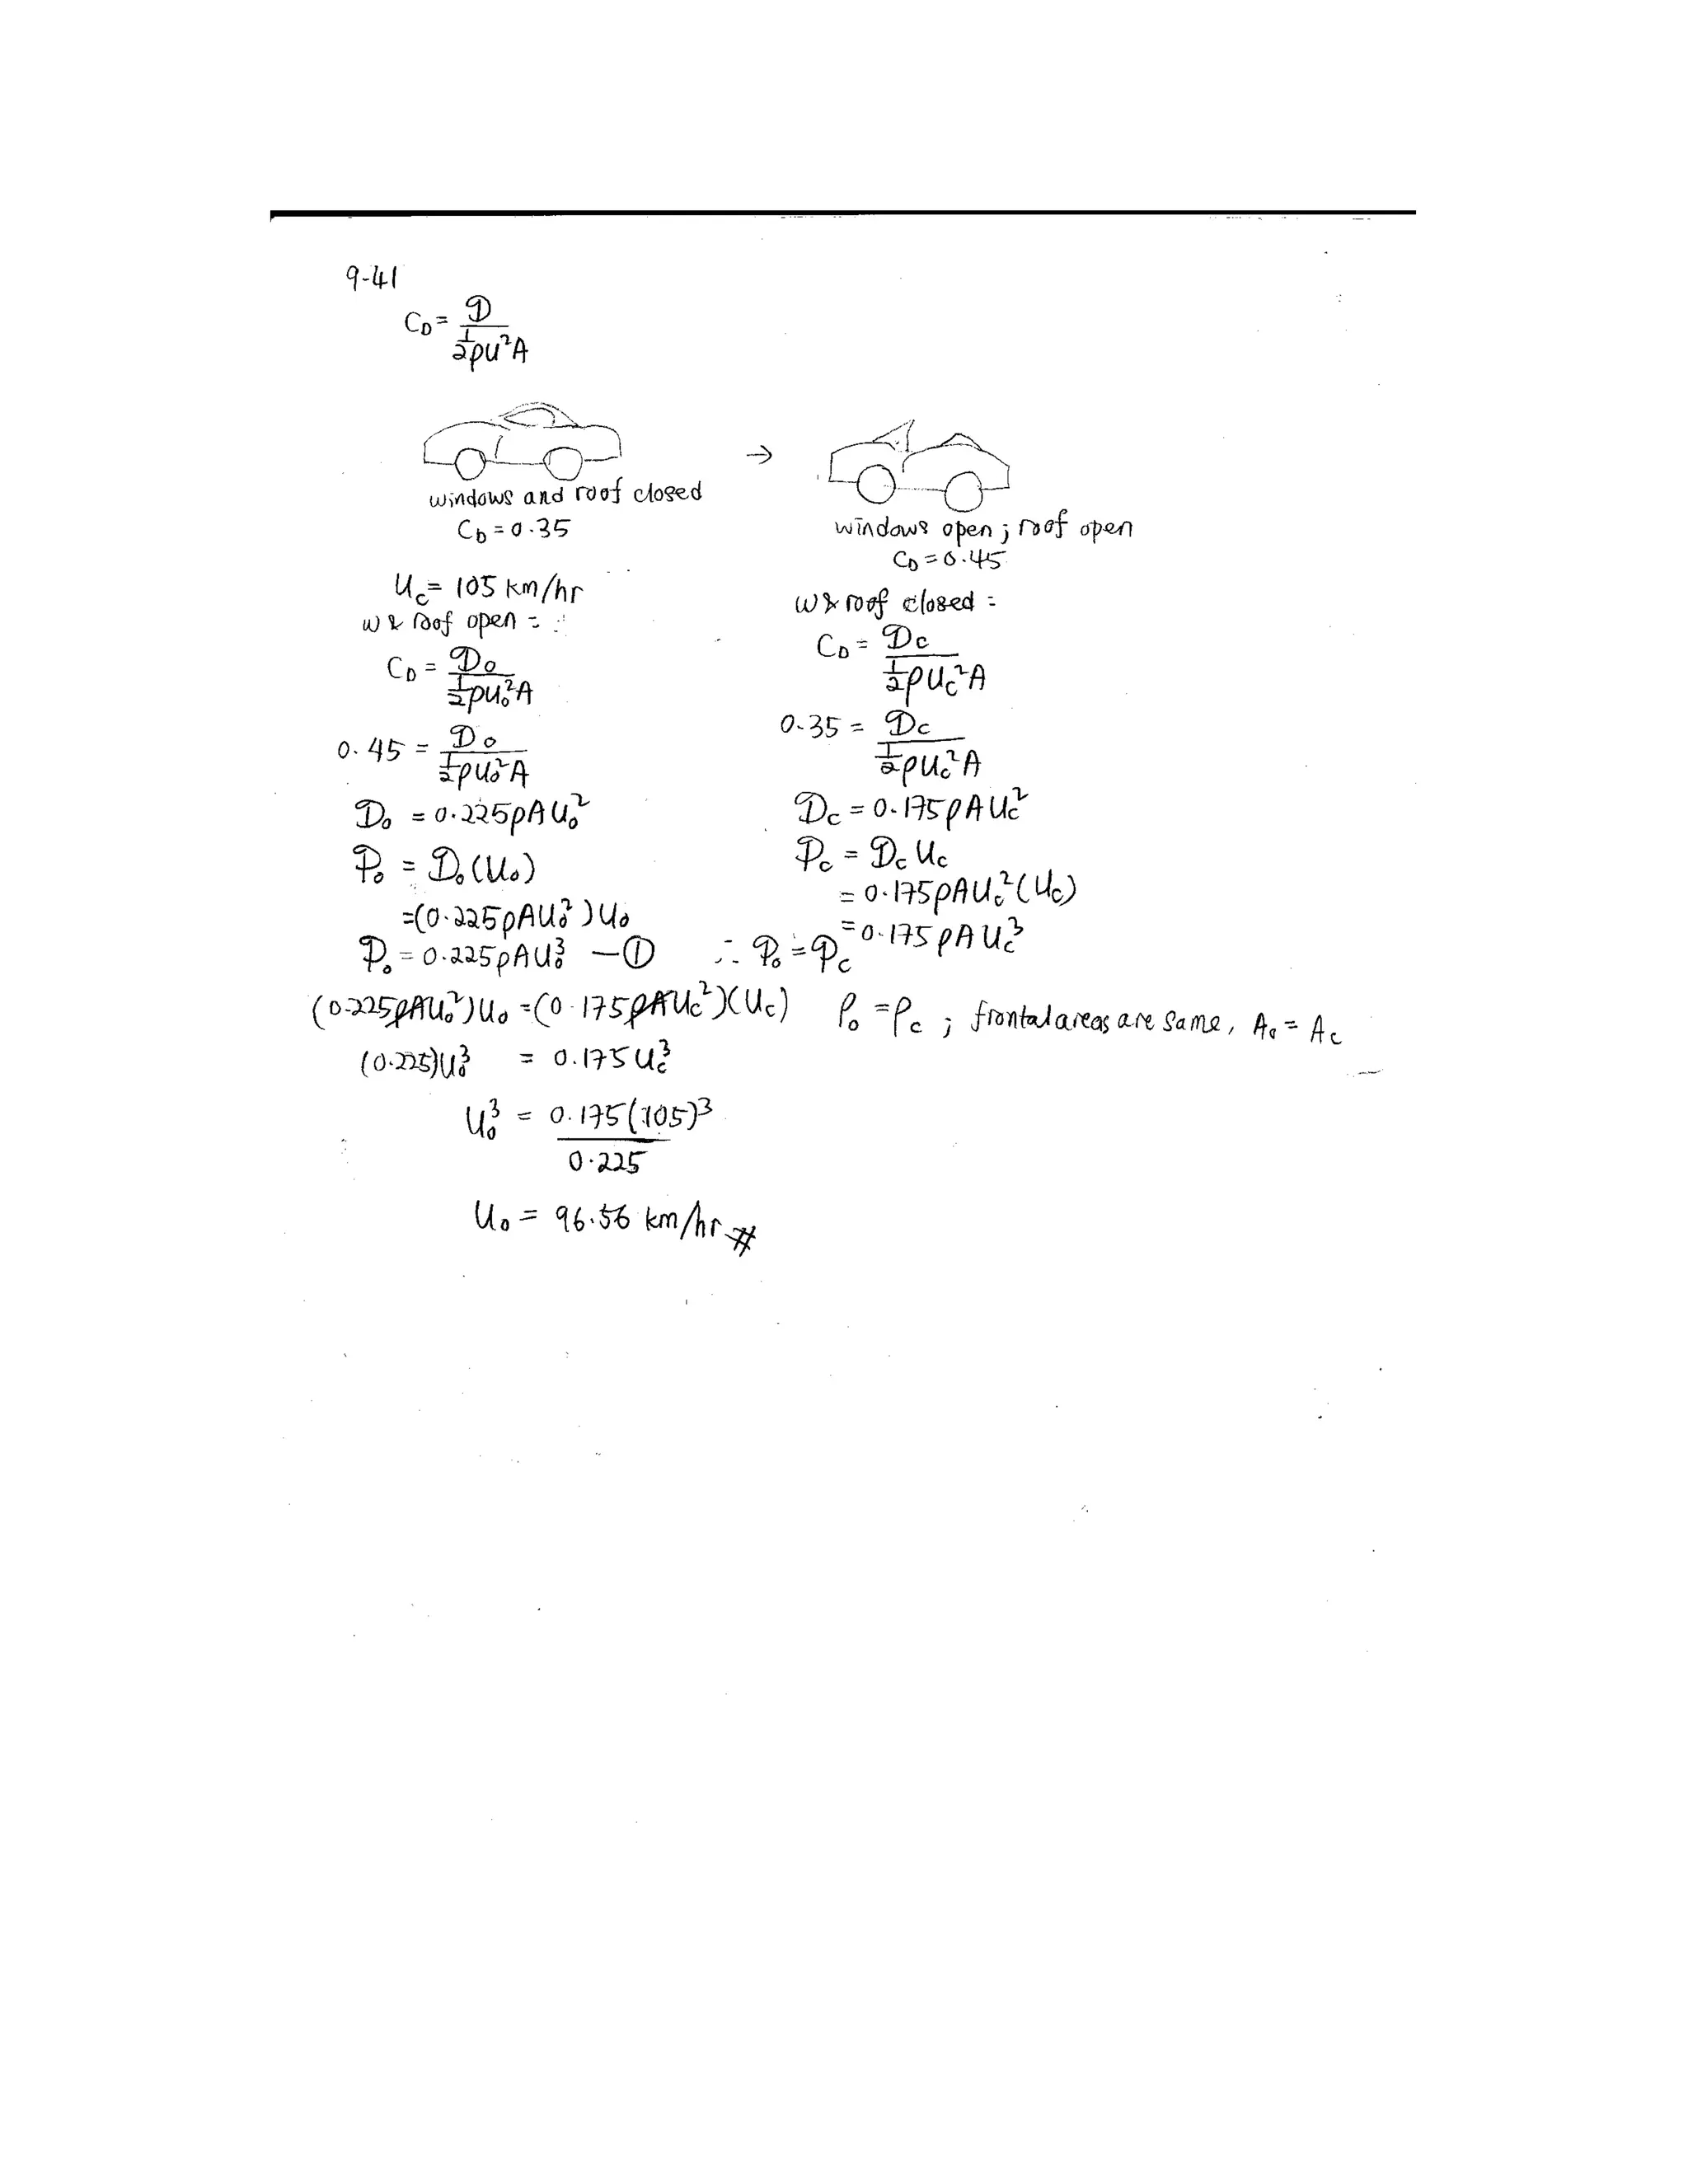 9-41
C_D = 𝒟 / (1/2 ρU²A)
→
windows and roof closed
C_D = 0.35
windows open; roof open
C_D = 0.45
U_c = 105 km/hr
w & roof open =
C_D = 𝒟_o / (1/2 ρU_o²A)
0.45 = 𝒟_o / (1/2 ρU_o²A)
𝒟_o = 0.225ρAU_o²
𝒫_o = 𝒟_o(U_o)
=(0.225ρAU_o²)U_o
𝒫_o = 0.225ρAU_o³ —①
w & roof closed =
C_D = 𝒟_c / (1/2 ρU_c²A)
0.35 = 𝒟_c / (1/2 ρU_c²A)
𝒟_c = 0.175ρAU_c²
𝒫_c = 𝒟_c U_c
= 0.175ρAU_c²(U_c)
= 0.175ρAU_c³
∴ 𝒫_o = 𝒫_c
(0.225ρAU_o²)U_o = (0.175ρAU_c²)(U_c) ρ_o = ρ_c ; frontal areas are same, A_o = A_c
(0.225)U_o³ = 0.175U_c³
U_o³ = 0.175(105)³ / 0.225
U_o = 96.56 km/hr #